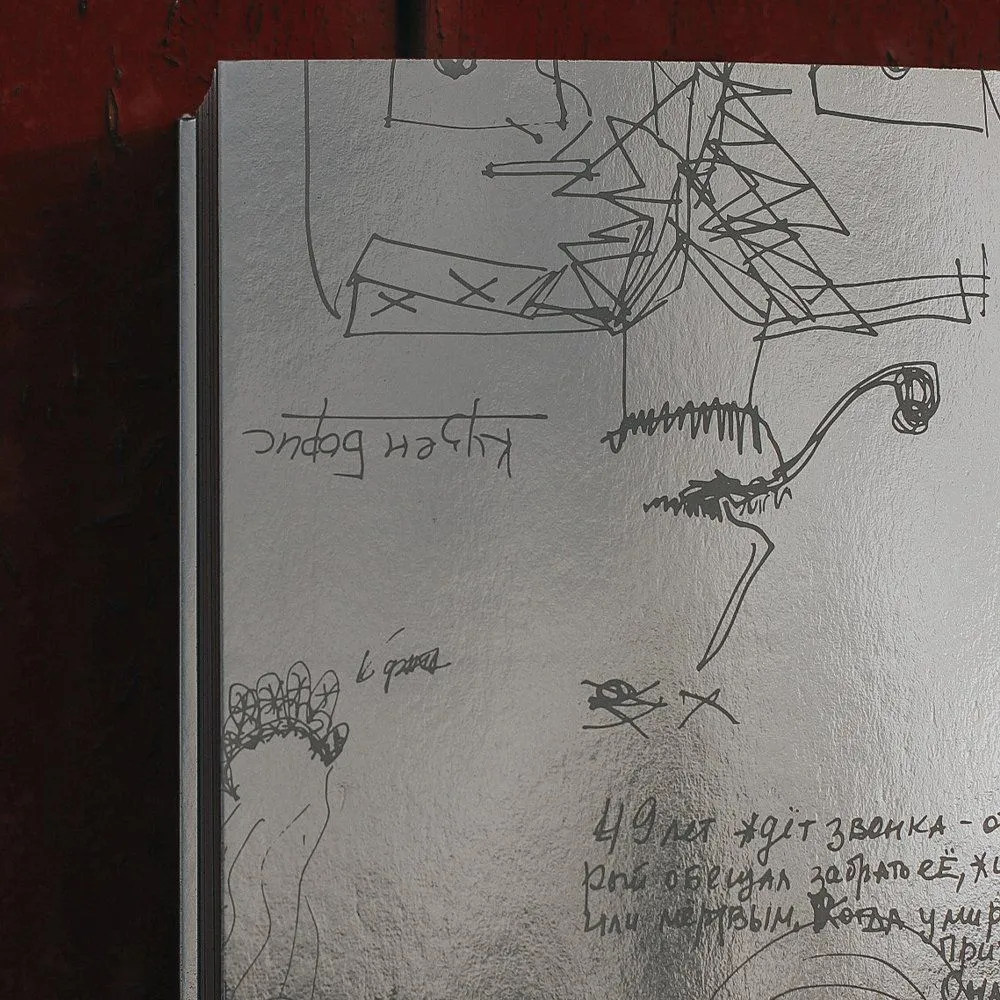 Кузен Борис
49 лет ждёт звонка - о
рый обещал забрать её, ж
или мертвым. Когда умир
При
Она